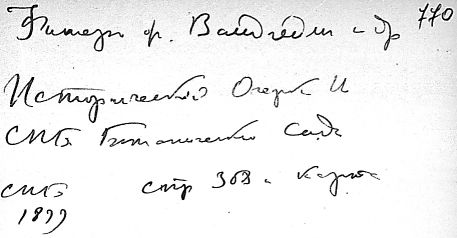 Фишеръ ф. Вальдгеймъ и др 770
Исторический Очеркъ И
СПБ Ботаническаго Сада
СПБ стр 308 и карта
1899